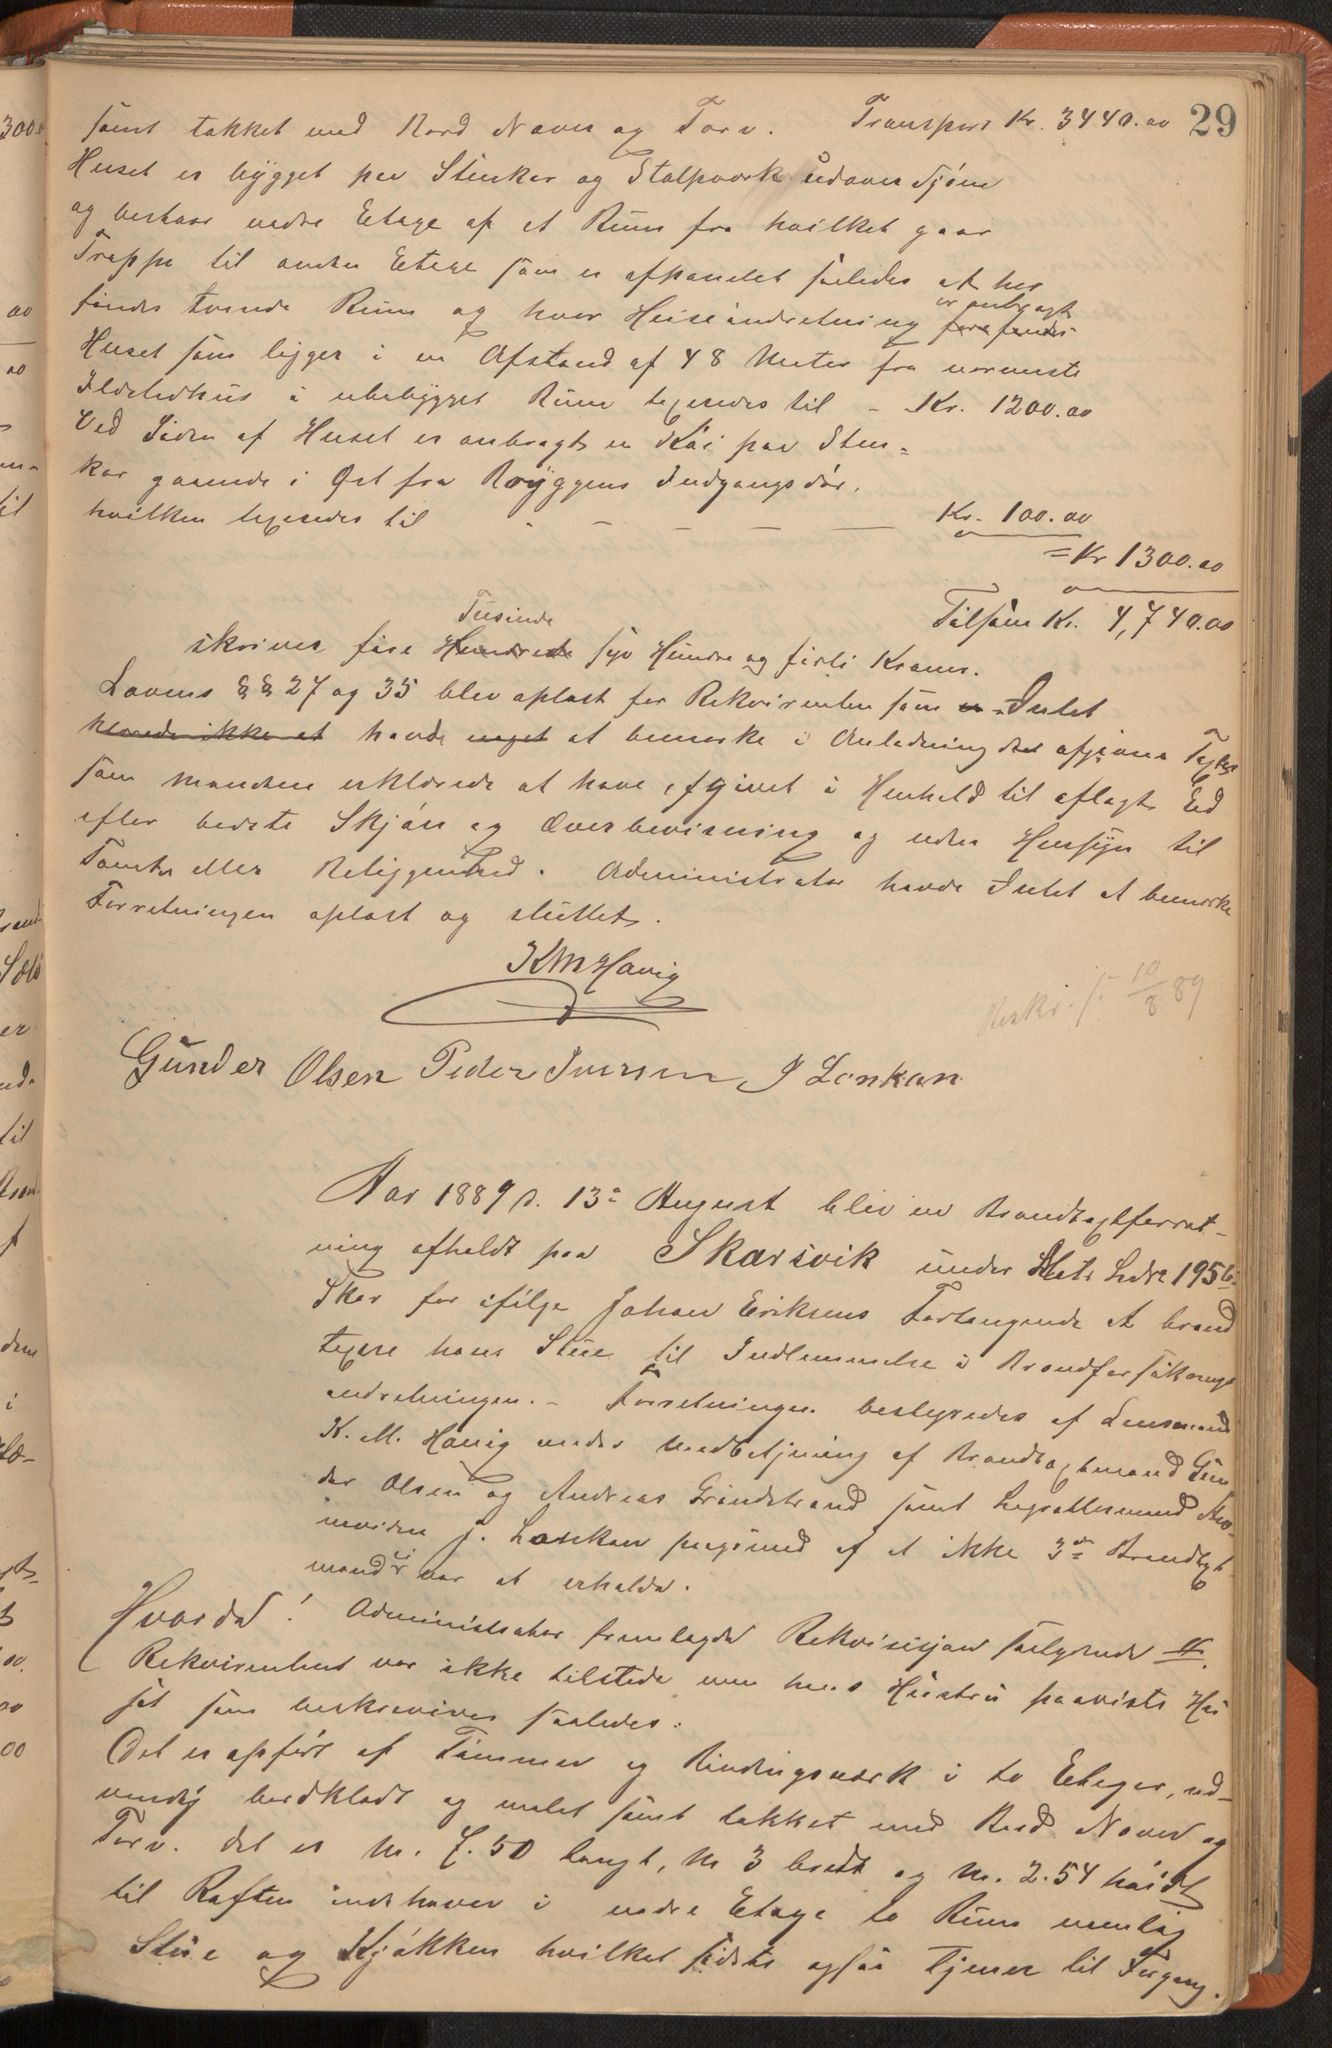 samt takket med Bord Næver og Torv. Transport Kr. 3440.00 29
Huset er bygget paa Stenkar og Stolpværk udover Sjøen
og bestaar nedre Etage af et Rum fra hvilket gaar
Trappe til anden Etage som er afpanelet saaledes at her
findes tvende Rum og hvor Heiseindretning forefindes er anbragt
Huset som ligger i en Afstand af 48 Meter fra nærmeste
Ildstedhus i ubebygget Rum taxeredes til - Kr. 1200.00
Ved Siden af Huset er anbragt en Kai paa Sten=
kar gaaende i Øst fra Bryggens Indgangsdør,
hvilken taxeredes til - - - - - Kr. 100.00
= Kr 1300.00
Tilsam Kr. 4,740.00
skriver fire Hundrede Tusinde syv Hundre og firti Kroner.
Lovens §§ 27 og 35 blev oplæst for Rekvirenten som Intet
havde noget at bemærke i Anledning den afgivne Taxt
som Mændene erklærede at have afgivet i Henhold til aflagt Ed
efter bedste Skjøn og Overbevisning og uden Hensyn til
Tomten eller Beliggenhed. Administrator havde Intet at bemærke
Forretningen oplæst og sluttet.
KMHavig
Beskr. f. 10/8 89
Gunder Olsen Peder Iversen J Lonkan
Aar 1889 d. 13de August blev en Brandtaxtforret-
ning afholdt paa Skarsvik under Matr Lnr 195
Skar for ifølge Johan Eriksens Forlangende at brand
taxere hans Stue til Indlemmelse i Brandforsikrings
indretningen. - Forretningen bestyredes af Lensmand
K. M. Havig under Medbetjening af Brandtaxtmænd Gun
der Olsen og Andreas Grindstrand samt Lagrettesmand
J. Lonkan paagrund af at ikke 3de Brandtaxt
mænd var at erholde.
Hvorda! Administrator fremlagde Rekvisisjon saalydende
Rekvirenten var ikke tilstede men hans Hustru paaviste Hu
set som beskrevives saaledes:
Det er opført af Tømmer og Bindingsværk i to Etager, ud-
vendig bordklædt og malet samt takket med Bord Næver og
Torv. det er M. 7.50 langt, M 3 bredt og M. 2.54 høidt
til Raften indehaver i nedre Etage to Rum nemlig
Stue og Kjøkken hvilket sidste ogsaa tjener til Forgang.